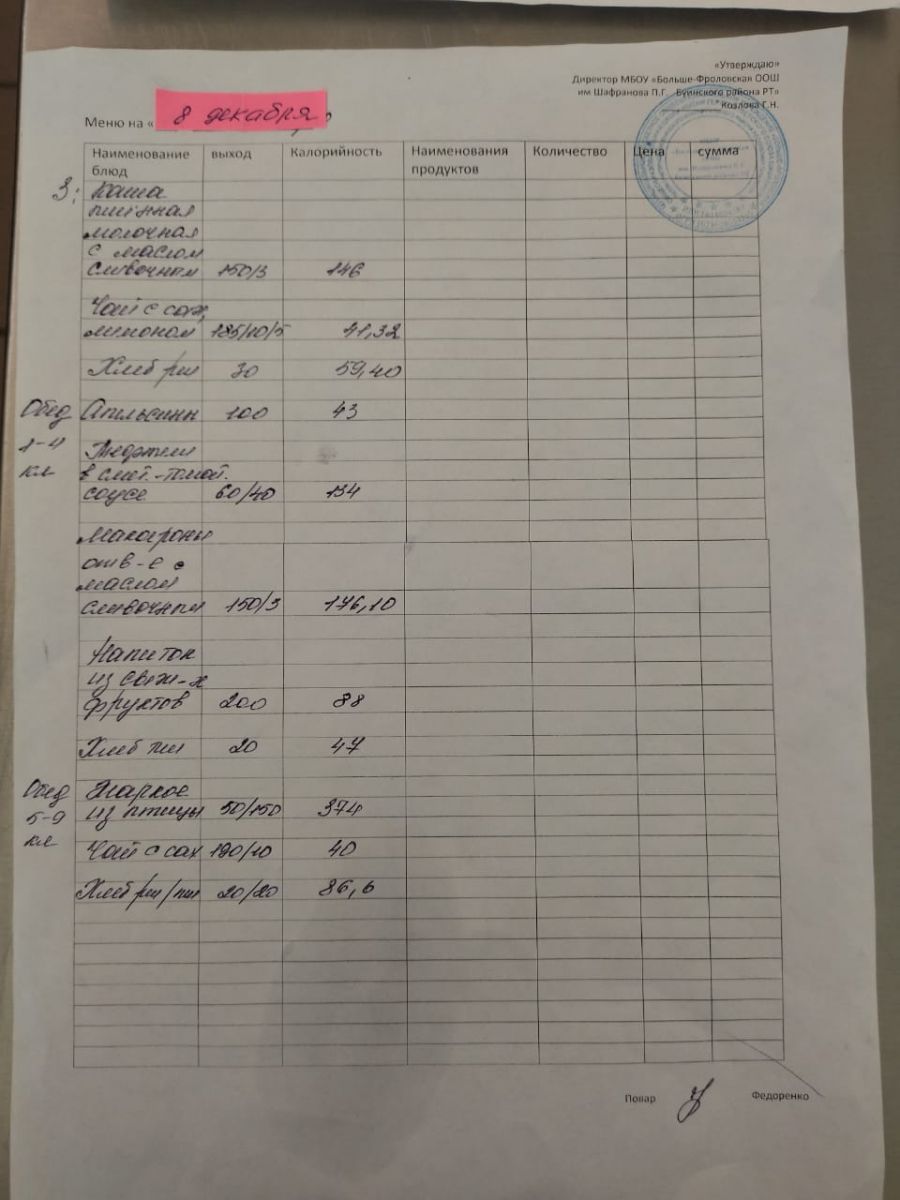 «Утверждаю»
Директор МБОУ «Больше-Фроловская ООШ
им Шафранова П.Г. Буинского района РТ»
Козлова Г.Н.
Меню на « 8 декабря
Наименование блюд выход Калорийность Наименования продуктов Количество Цена сумма
З: Каша
пшённая
молочная
с маслом
сливочным 150/3 146
Чай с сах,
лимоном 185/10/5 41,32
Хлеб рж 30 59,40
Обед Апельсины 100 43
1-4 Тефтели
кл в смет.-томат.
соусе 60/40 134
Макароны
отв-е с
маслом
сливочным 150/3 176,10
Напиток
из свеж-х
фруктов 200 88
Хлеб пш 20 47
Обед Жаркое
5-9 из птицы 50/150 374
кл
Чай с сах 190/10 40
Хлеб рж/пш 20/20 86,6
Повар Федоренко